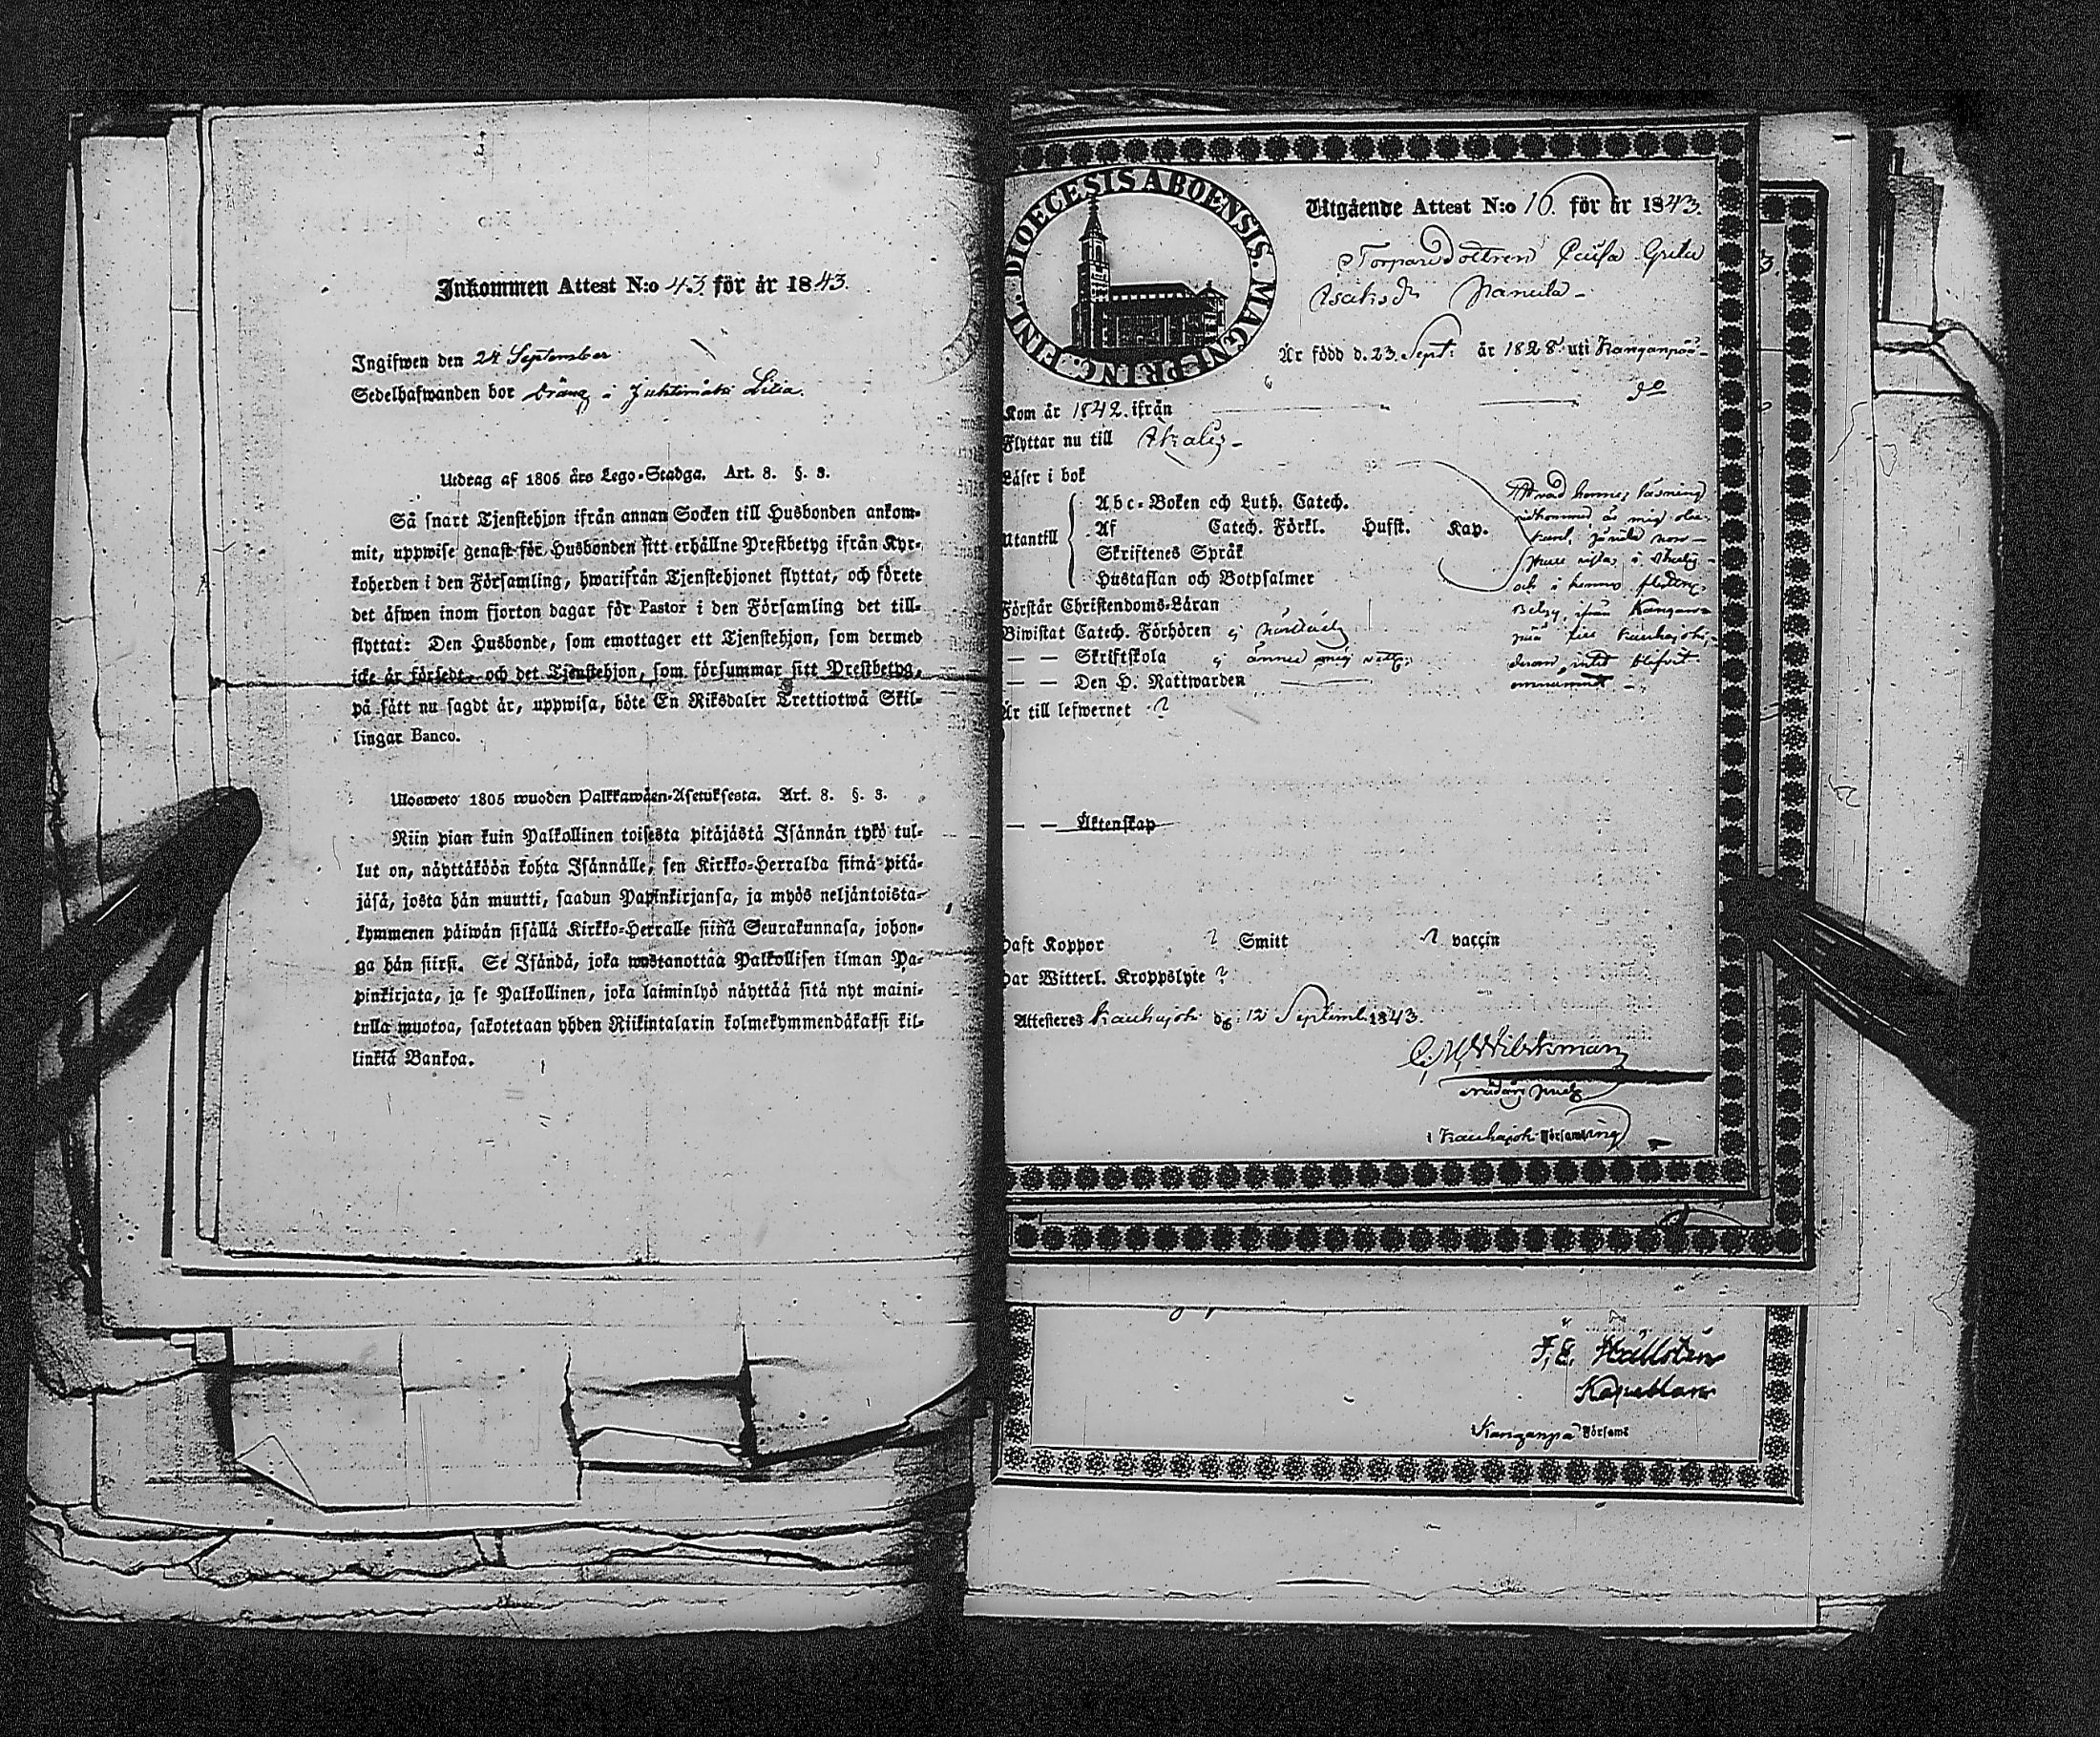 Inkommen Attest N:o 43. för år 1843.
Ingifwen den 24 September
Sedelhafwanden bor dräng i Juhtimäki Lilia.
Utdrag af 1805 års Lego-Stadga. Art. 8. §. 3.
Så snart Tjenstehjon ifrån annan Socken till Husbonden ankom-
mit, uppwise genast för Husbonden sitt erhållne Prestbetyg ifrån Kyr-
koherden i den Församling, hwarifrån Tjenstehjonet flyttat, och förete
det äfwen inom fjorton dagar för Pastor i den Församling det till-
flyttat: Den Husbonde, som emottager ett Tjenstehjon, som dermed
icke är försedt, och det Tjenstehjon, som försummar sitt Prestbetyg,
på sätt nu sagdt är, uppwisa, böte En Riksdaler Trettiotwå Skil-
lingar Banco.
Ulosweto 1805 wuoden Palkkawäen-Asetuksesta. Art. 8. §. 3.
Niin pian kuin Palkollinen toisesta pitäjästä Isännän tykö tul-
lut on, näyttäköön kohta Isännälle, sen Kirkko-Herralda siinä pitä-
jäsä, josta hän muutti, saadun Papinkirjansa, ja myös neljäntoista-
kymmenen päiwän sisällä Kirkko-Herralle siinä Seurakunnasa, johon-
ga hän siirsi. Se Isändä, joka wastanottaa Palkollisen ilman Pa-
pinkirjata, ja se Palkollinen, joka laiminlyö näyttää sitä nyt maini-
tulla muotoa, sakotetaan yhden Riikintalarin kolmekymmendäkaksi kil-
linkiä Bankoa.
DIOECESIS ABOENSIS. MAGNI PRINC. FINL.
Utgående Attest N:o 16. för år 1843.
Torparedottren Caisa Greta
Isaksdr Hannula
Är född d. 23. Sept: år 1828. uti Kanganpää
Kom år 1842. ifrån
Flyttar nu till Ikalis
Läser i bok
Utantill
Abc-Boken och Luth. Catech.
Af Catech. Förkl. Hufst. Kap.
Skriftenes Språk
Hustaflan och Botpsalmer
Hvad hennes läsning
widkommer, är mig obe-
kant,
och i hennes flyttnings
Betyg ifrån Kangan-
pää till Kauhajoki,
derom intet blifvit
omnämnt
Förstår Christendoms-Läran
Biwistat Catech. Förhören ej
— — Skriftskola ej ännu mig
— — Den H. Nattwarden
Är till lefwernet ?
— — Äktenskap
Haft Koppor ? Smitt ? vaccin
Har Witterl. Kroppslyte ?
Attesteras Kauhajoki d. 12 Septemb. 1843.
Wilskman
i Kauhajoki Församling
F, E. Hällsten
Kapellan
Kanganpä Församl